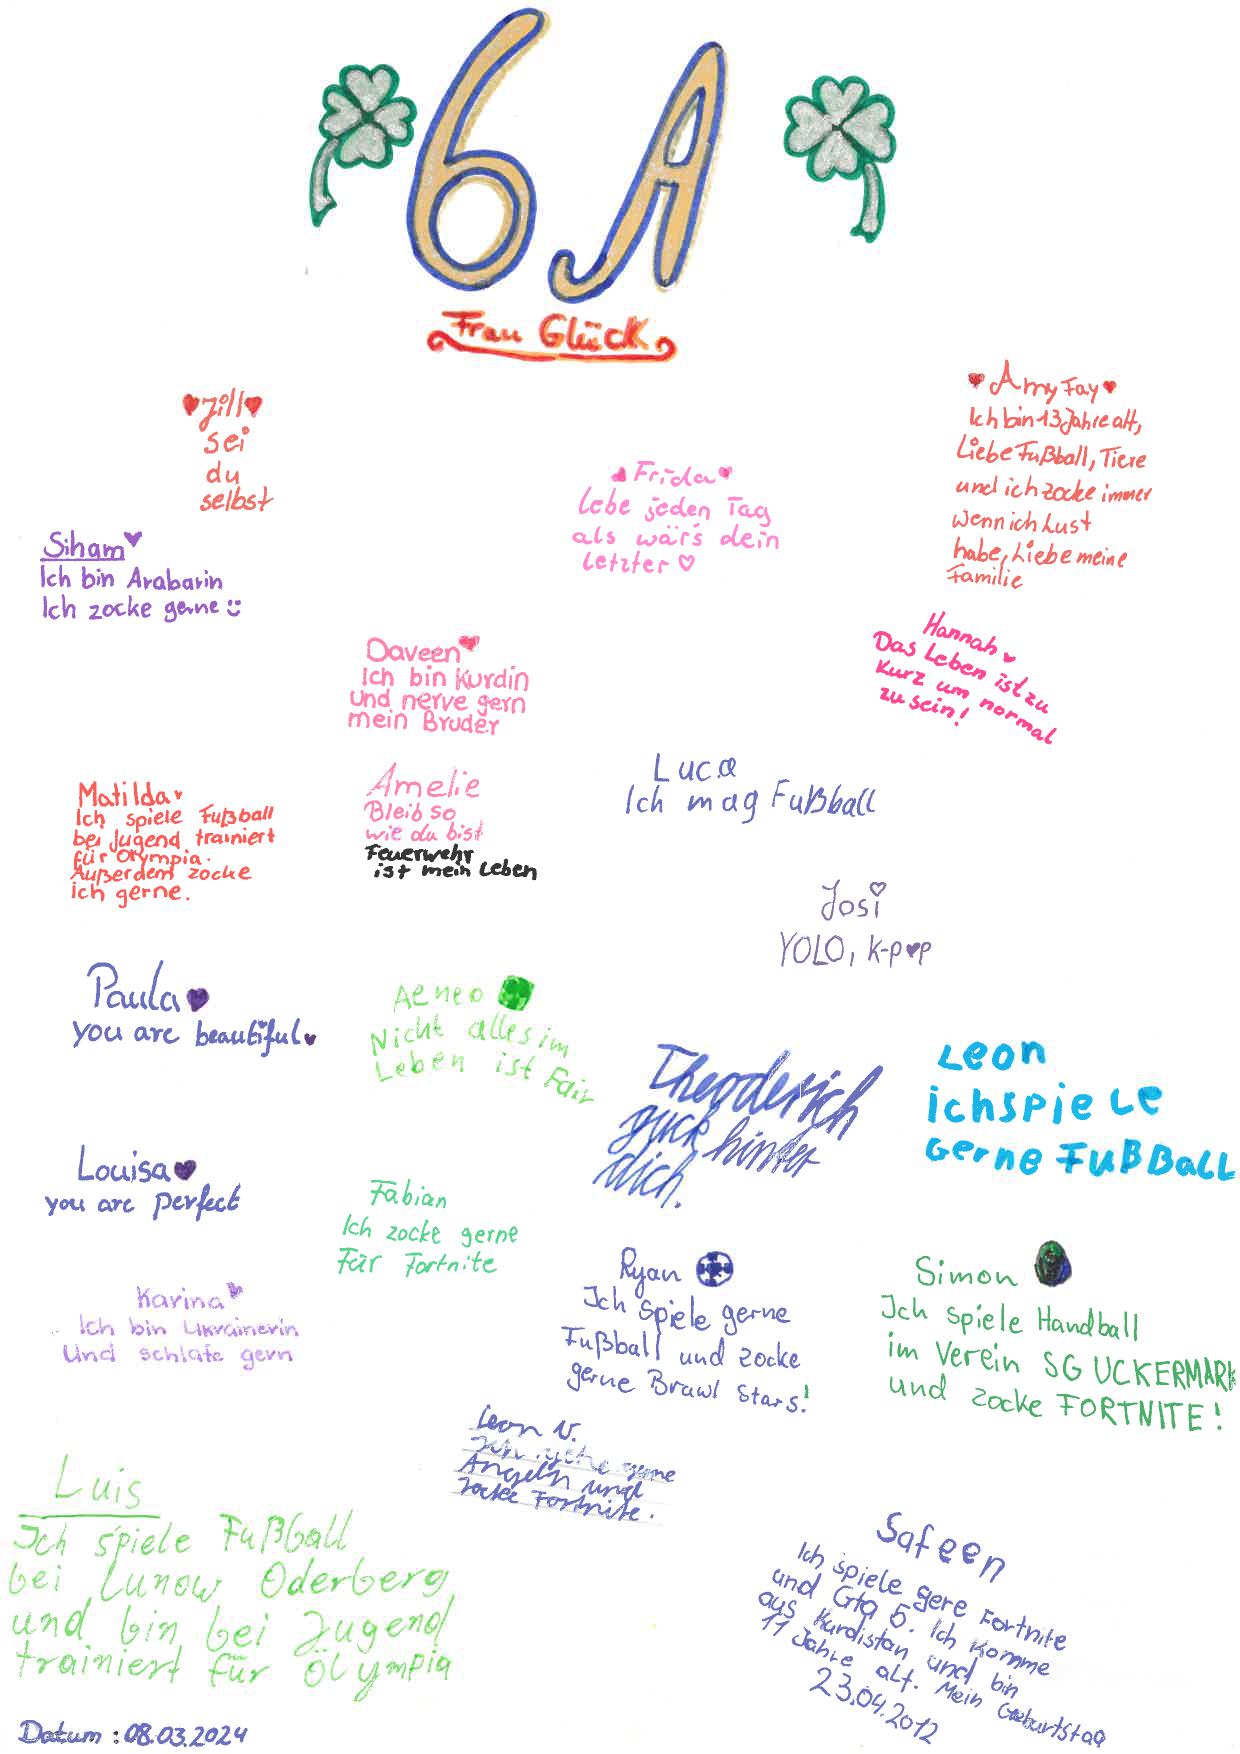 6A
Frau Glück
Jill
sei
du
selbst
Amy Fay
Ich bin 13 Jahre alt,
Liebe Fußball, Tiere
und ich zocke immer
wenn ich Lust
habe, Liebe meine
Familie
Frida
Lebe jeden Tag
als wär's dein
Letzter
Siham
Ich bin Arabarin
Ich zocke gerne
Daveen
Ich bin Kurdin
und nerve gern
mein Bruder
Hannah
Das Leben ist zu
Kurz um normal
zu sein!
Matilda
Ich spiele Fußball
bei Jugend trainiert
für Olympia.
Außerdem zocke
ich gerne.
Amelie
Bleib so
wie du bist
Feuerwehr
ist mein Leben
Luca
Ich mag Fußball
Josi
YOLO, K-pop
Paula
you are beautiful
Aeneo
Nicht alles im
Leben ist Fair
Theoderich
guck hinter
dich.
Leon
ich spiele
Gerne Fußball
Louisa
you are perfect
Fabian
Ich zocke gerne
Für Fortnite
Karina
Ich bin Ukrainerin
Und schlafe gern
Ryan
Ich spiele gerne
Fußball und zocke
gerne Brawl Stars!
Simon
Ich spiele Handball
im Verein SG UCKERMARK
und zocke FORTNITE!
Leon N.
gerne
Angeln und
zocke Fortnite.
Luis
Ich spiele Fußball
bei Lunow Oderberg
und bin bei Jugend
trainiert für Olympia
Safeen
Ich spiele gere Fortnite
und Gta 5. Ich komme
aus Kurdistan und bin
11 Jahre alt. Mein Geburtstag
23.04.2012
Datum: 08.03.2024